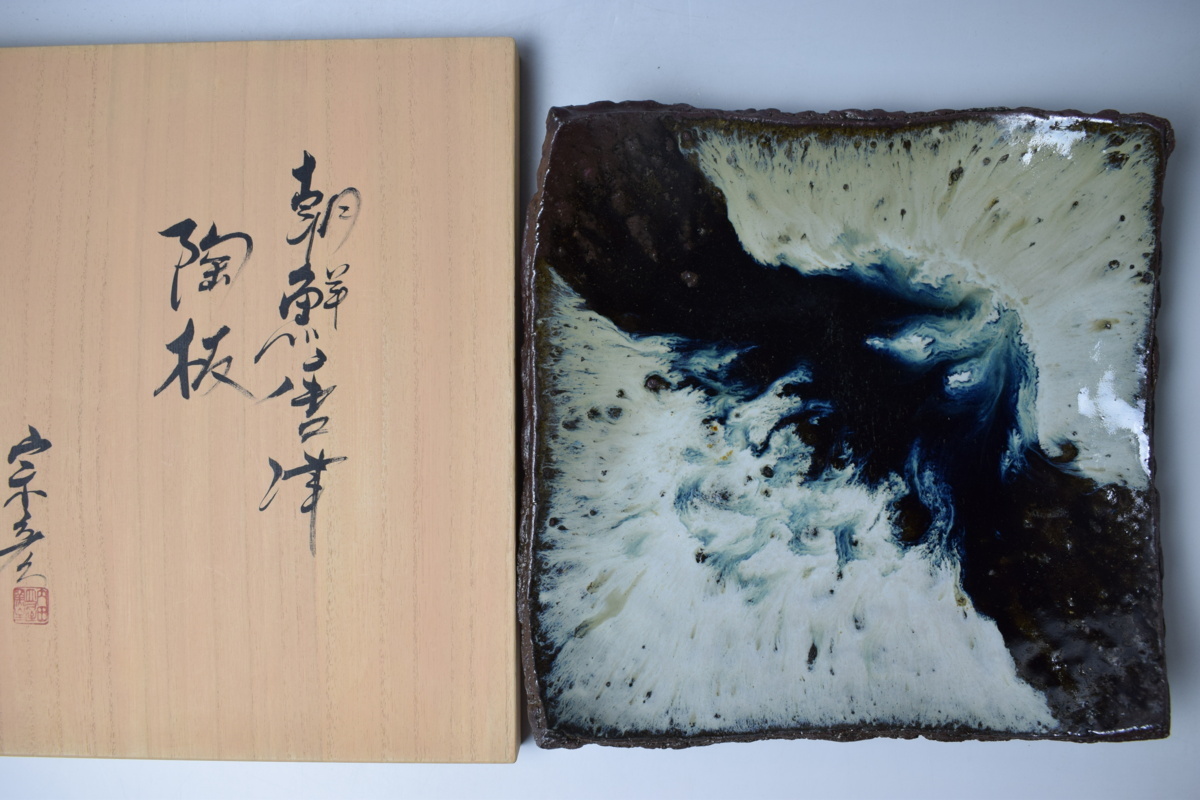 朝鮮唐津
陶板